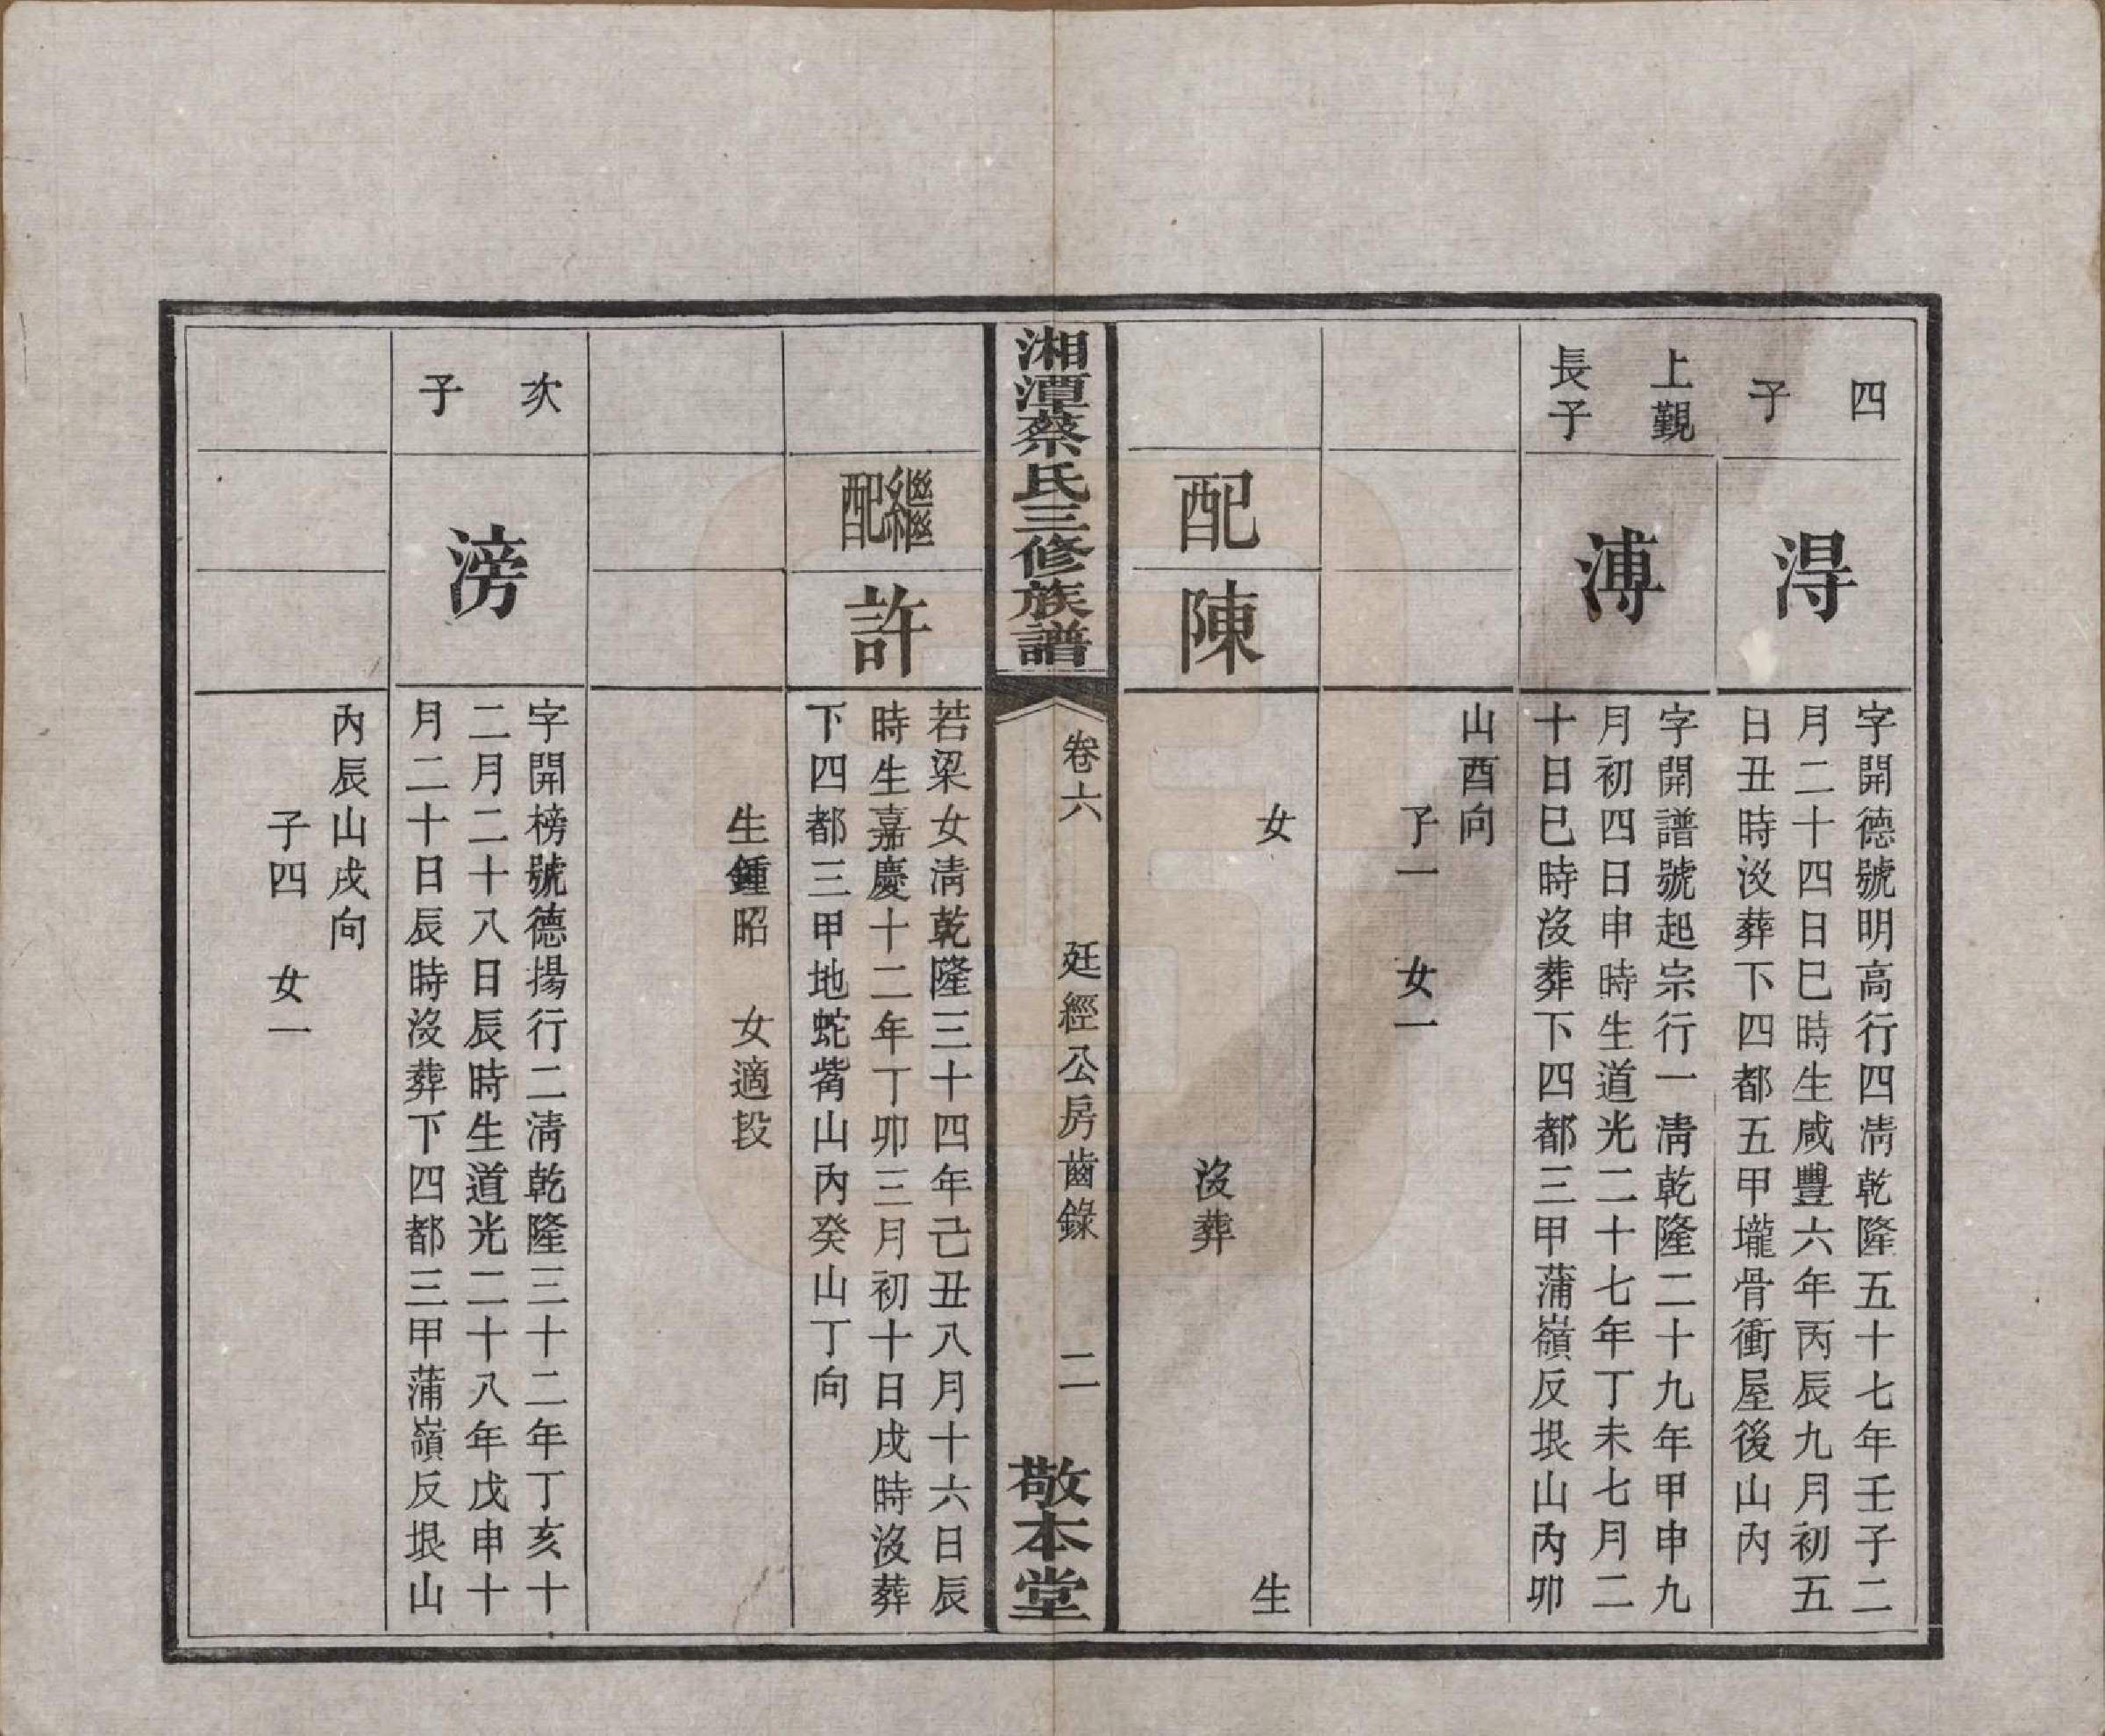 四
子
淂
字開德號明高行四淸乾隆五十七年壬子二
月二十四日巳時生咸豐六年丙辰九月初五
日丑時沒葬下四都五甲壠骨衝屋後山內
上覲
長子
溥
字開譜號起宗行一淸乾隆二十九年甲申九
月初四日申時生道光二十七年丁未七月二
十日巳時沒葬下四都三甲蒲嶺反垠山內卯
山酉向
子一　女一
配
陳
女　生
沒葬
湘潭蔡氏三修族譜
卷六　廷經公房齒錄　二
敬本堂
繼
配
許
若梁女淸乾隆三十四年己丑八月十六日辰
時生嘉慶十二年丁卯三月初十日戌時沒葬
下四都三甲地蛇觜山內癸山丁向
生鍾昭　女適段
次
子
滂
字開榜號德揚行二淸乾隆三十二年丁亥十
二月二十八日辰時生道光二十八年戊申十
月二十日辰時沒葬下四都三甲蒲嶺反垠山
內辰山戌向
子四　女一